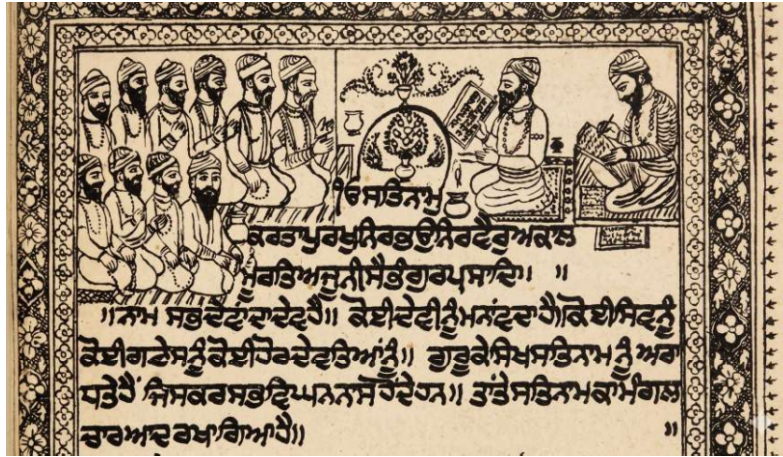 ੴ ਸਤਿਨਾਮੁ
ਕਰਤਾਪੁਰਖੁਨਿਰਭਉਨਿਰਵੈਰੁਅਕਾਲ
ਮੂਰਤਿਅਜੂਨੀਸੈਭੰਗੁਰਪ੍ਰਸਾਦਿ॥ ॥
॥ਨਾਮ ਸਭਦੇਵਾਂਦਾਦੇਵਹੈ॥ ਕੋਈਦੇਵੀਨੂੰਮਨਾਂਵਦਾਹੈ॥ਕੋਈਸਿਵਨੂੰ
ਕੋਈਗਣੇਸਨੂੰਕੋਈਹੋਰਦੇਵਤਿਆਂਨੂੰ॥ ਗੁਰੂਕੇਸਿਖਸਤਿਨਾਮ ਨੂੰ ਅਰਾ
ਧਤੇਹੈਂ ਜਿਸਕਰਸਭਵਿਘਨਨਸਹੋਂਦੇਹਨ॥ ਤਾਂਤੇਸਤਿਨਾਮਕਾਮੰਗਲ
ਚਾਰਆਦਰਖਾਗਿਆਹੈ॥ ॥